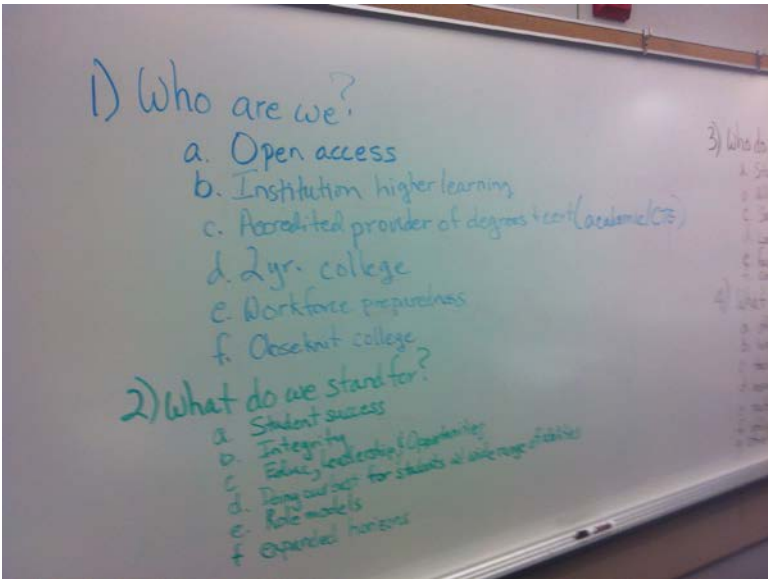 1) Who are we?
a. Open access
b. Institution higher learning
c. Accredited provider of degrees & cert (academic/CTE)
d. 2 yr. college
e. Workforce preparedness
f. Closeknit college
2) What do we stand for?
a. Student success
b. Integrity
c. Educ, leadership, & Opportunities
d. Doing our best for students w/ wide range of abilities
e. Role models
f expanded horizons
3) Who do
4) What